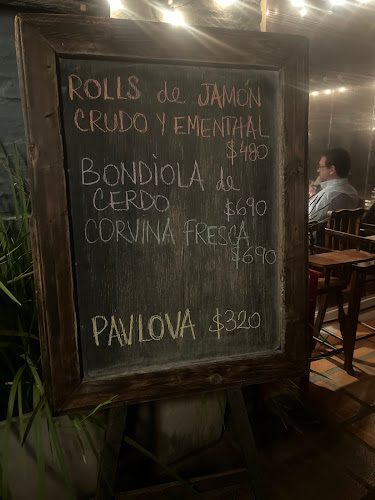 ROLLS de JAMÓN
CRUDO Y EMENTHAL
$480
BONDIOLA de
CERDO $690
CORVINA FRESCA
$690
PAVLOVA $320